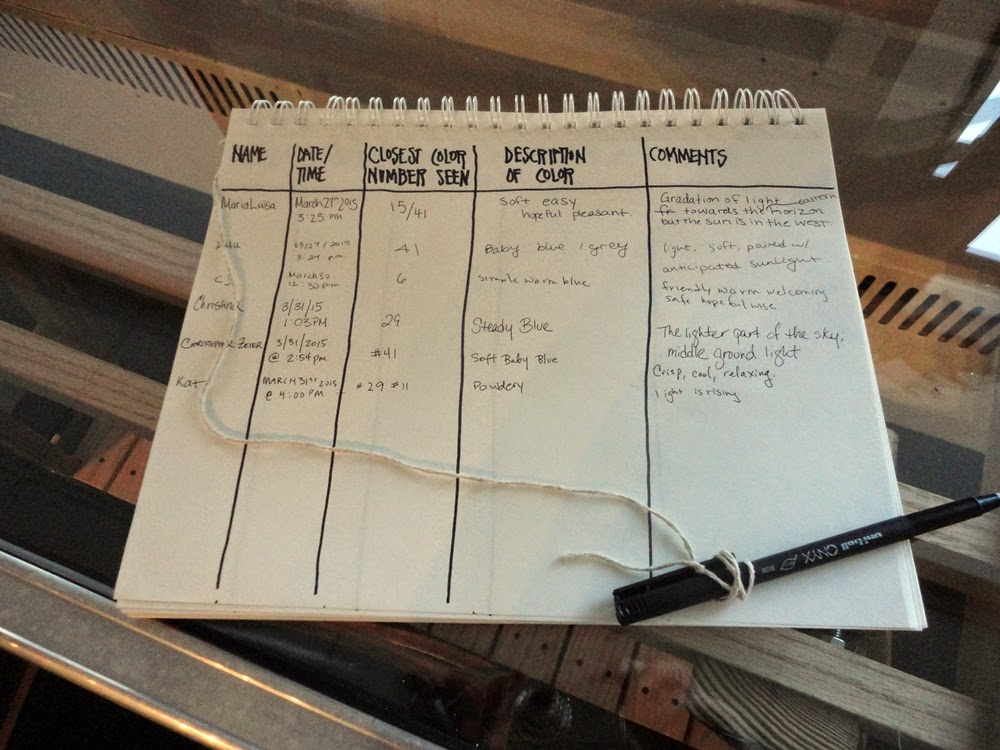 NAME
DATE/
TIME
CLOSEST COLOR
NUMBER SEEN
DESCRIPTION
OF COLOR
COMMENTS
MariaLuisa
March 27th 2015
3:25 PM
15/41
Soft easy
hopeful pleasant.
Gradation of light eastern
towards the horizon
but the sun is in the west.
03/27/2015
3:27 pm
41
Baby blue / grey
light, soft, paired w/
anticipated sunlight
CJ
March 30
12:30pm
6
simple warm blue
friendly warm welcoming
safe hopeful wise
Christina
3/31/15
1:03PM
29
Steady Blue
The lighter part of the sky;
middle ground light
CHRISTOPHER
3/31/2015
@ 2:54pm
#41
Soft Baby Blue
Crisp, cool, relaxing.
Kat
MARCH 31st 2015
@ 4:00 PM
#29 #11
Powdery
light is rising
uni-ball ONYX